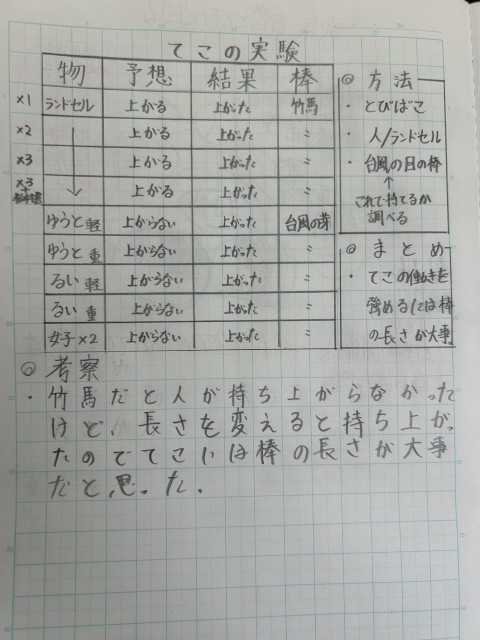 てこの実験
物 予想 結果 棒
×1 ランドセル 上がる 上がった 竹馬
×2 上がる 上がった 〃
×3 上がる 上がった 〃
×3 上がる 上がった 〃
ゆうと軽 上がらない 上がった 台風の芽
ゆうと重 上がらない 上がった 〃
るい軽 上がらない 上がった 〃
るい重 上がらない 上がった 〃
女子×2 上がらない 上がった 〃
◎方法
・とびばこ
・人/ランドセル
・台風の目の棒
↑
これで持てるか
調べる
◎まとめ
・てこの働きを
強めるには棒
の長さが大事
◎考察
・竹馬だと人が持ち上がらなかった
けど、長さを変えると持ち上がっ
たのでてこには棒の長さが大事
だと思った.